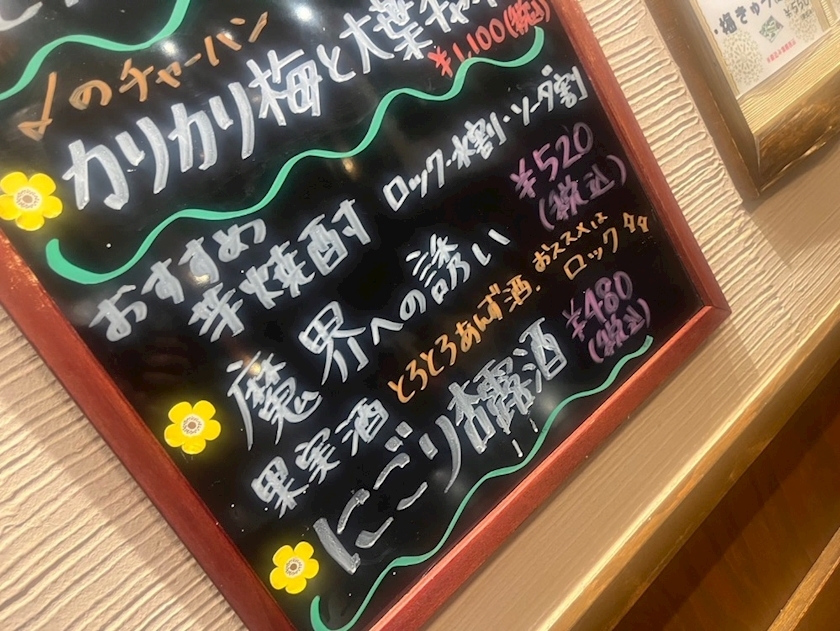 〆のチャーハン
カリカリ梅と大葉チャー
¥1,100(税込)
おすすめ
芋焼酎
ロック・水割・ソーダ割
魔界への誘い
¥520
(税込)
果実酒
とろとろあんず酒。
おススメは
ロック
にごり杏露酒
¥480
(税込)